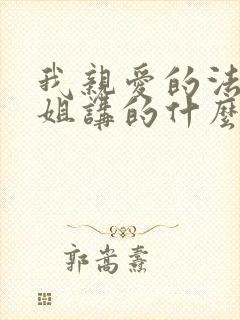 我親愛的法
姐講的什麼
郭嵩燾